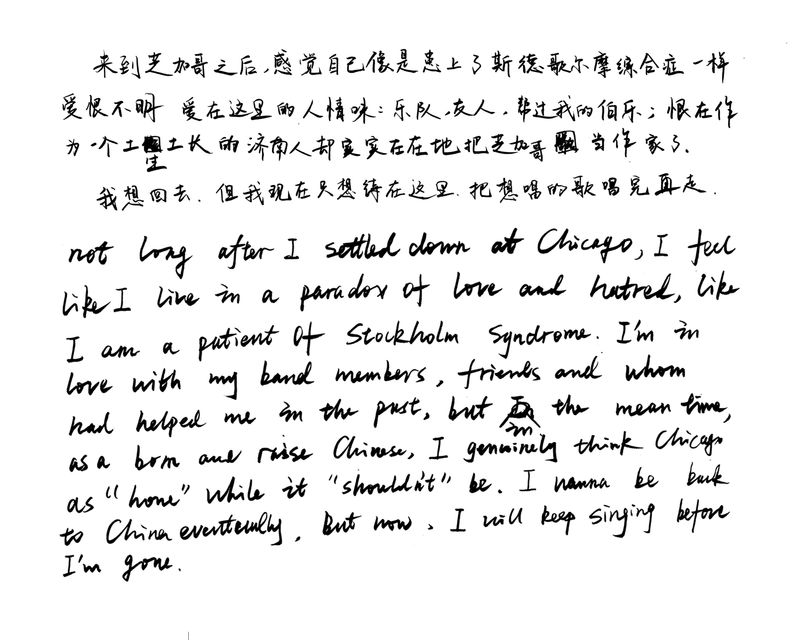 来到芝加哥之后,感觉自己像是患上了斯德歌尔摩综合症一样
爱恨不明 爱在这里的人情味:乐队,友人,帮过我的伯乐;恨在作
为一个土生土长的济南人却实实在在地把芝加哥当作家了.
我想回去.但我现在只想待在这里.把想唱的歌唱完再走.
not long after I settled down at Chicago, I feel
like I live in a paradox of love and hatred, like
I am a patient of Stockholm Syndrome. I'm in
love with my band members, friends and whom
had helped me in the past, but in the mean time,
as a born and raise Chinese, I genuinely think Chicago
as "home" while it "shouldn't" be. I wanna be back
to China eventually, But now, I will keep singing before
I'm gone.